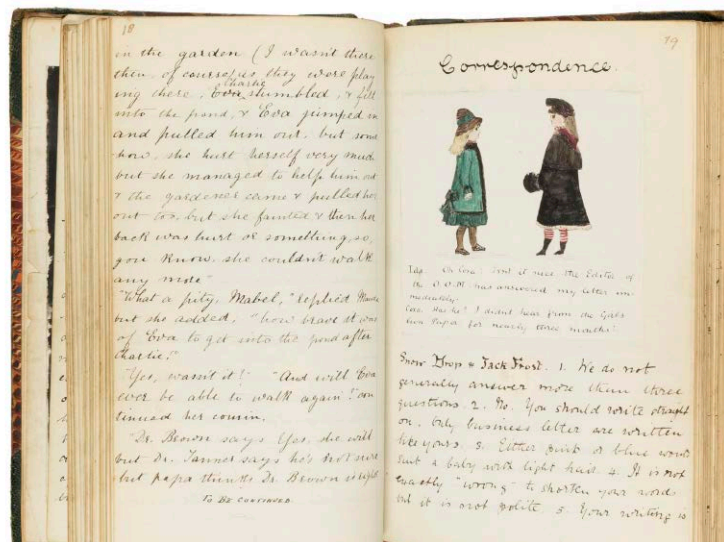 18
in the garden (I wasn't there
then, of course) as they were play
ing there, Charlie stumbled, & fell
into the pond, & Eva jumped in
and pulled him out, but some
how, she hurt herself very much
but she managed to help him out
& the gardener came & pulled her
out too, but she fainted & then her
back was hurt or something, so,
you know, she couldn't walk
any more"
"What a pity, Mabel," replied
but she added, "how brave it was
of Eva to get into the pond after
Charlie!"
"Yes, wasn't it!" "And will Eva
ever be able to walk again?" con
tinued her cousin.
"Dr. Brown says Yes, she will
but Dr. Tanner says he's not sure
but papa thinks Dr. Brown is right
TO BE CONTINUED.
19
Correspondence.
Ida. Oh Cora! Isn't it nice the Editor of
the has answered my letter im-
mediately.
Cora. Has he? I didn't hear from the Girls
Own Paper for nearly three months!
Snow Drop & Jack Frost. 1. We do not
generally answer more than three
questions. 2. No. You should write straight
on. Only business letter are written
like yours. 3. Either pink or blue would
suit a baby with light hair. 4. It is not
exactly "wrong" to shorten your words
but it is not polite. 5. Your writing is